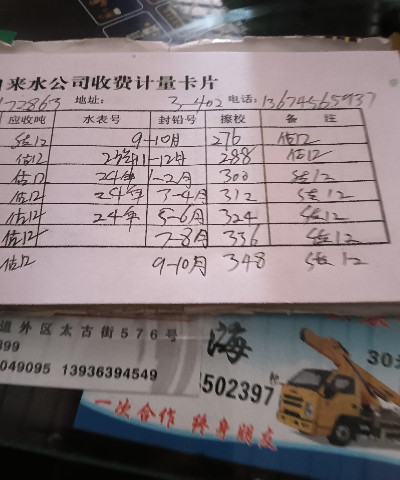 来水公司收费计量卡片
地址: 3-402 电话: 13674565937
应收吨 水表号 封铅号 擦校 备 注
估12 9-10月 276 估12
估12 23年11-12月 288 估12
估12 24年1-2月 300 估12
估12 24年 3-4月 312 估12
估12 24年 5-6月 324 估12
估12 7-8月 336 估12
估12 9-10月 348 估12
道外区太古街576号
399
049095 13936394549
海
502397
30
一次合作 终身朋友